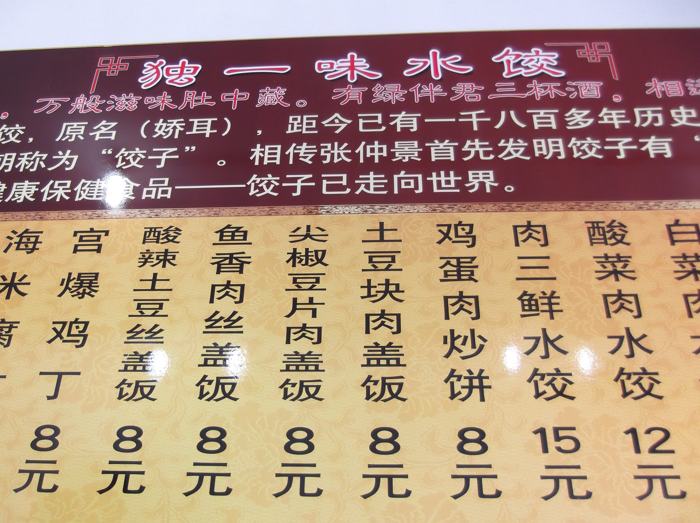 独一味水饺
万般滋味肚中藏。有绿伴君三杯酒，相
饺，原名（娇耳），距今已有一千八百多年历史
称为“饺子”。相传张仲景首先发明饺子有“
健康保健食品——饺子已走向世界。
海米
宫爆鸡丁
酸辣土豆丝盖饭
鱼香肉丝盖饭
尖椒豆片肉盖饭
土豆块肉盖饭
鸡蛋肉炒饼
肉三鲜水饺
酸菜肉水饺
白菜肉水
8元
8元
8元
8元
8元
8元
15元
12元